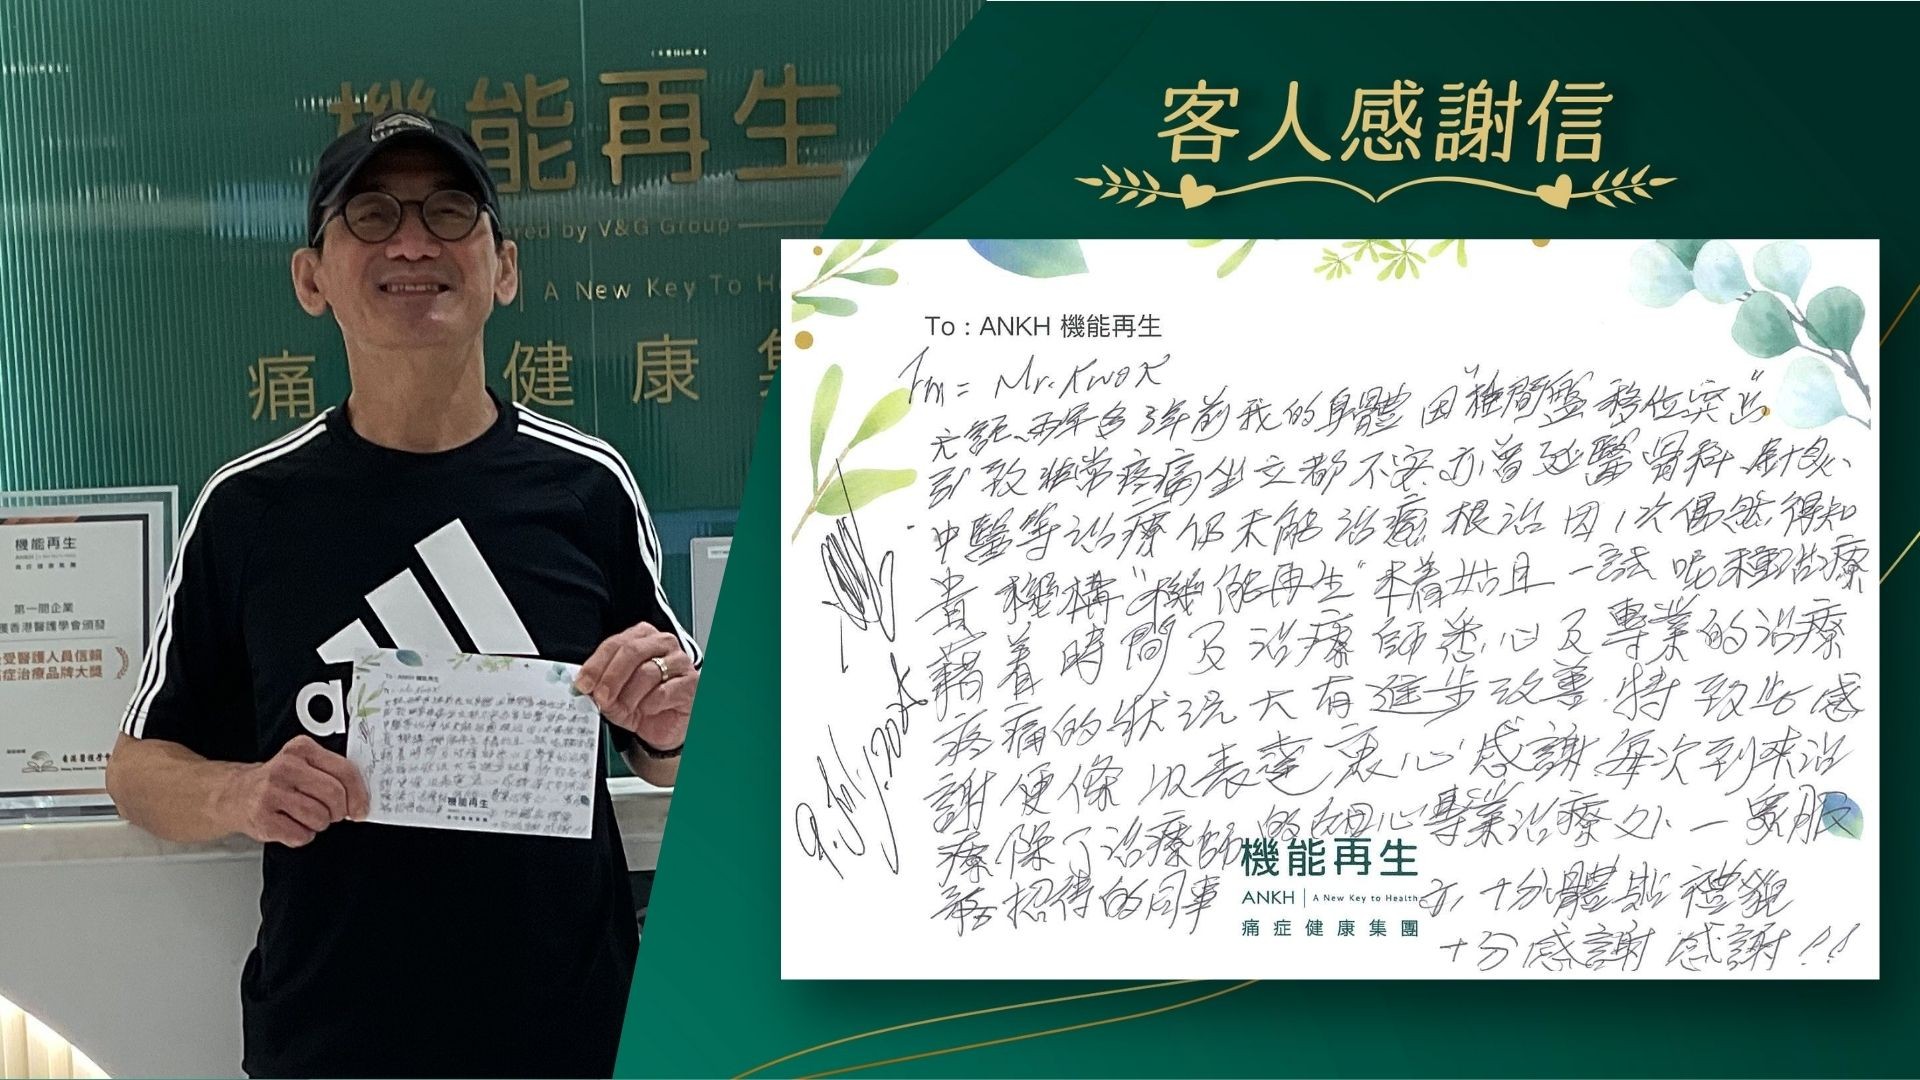 機能再生
ered by V&G Group
A New Key To He
痛 健康集
機能再生
ANKH
痛症健康集團
第一間企業
獲香港醫護學會頒發
受醫護人員信賴
症治療品牌大獎
香港醫護學會
客人感謝信
To : ANKH 機能再生
Fm = Mr. Kwok
兩年多3年前我的身體因"椎間盤移位突出"
引致非常疼痛坐立都不安亦曾延醫骨科針灸、
中醫等治療仍未能治癒根治因1次偶然得知
貴機構"機能再生"本着姑且一試呢種治療
藉着時間及治療師悉心及專業的治療
疼痛的狀況大有進步改善.特致此感
謝便條以表達衷心感謝.每次到來治
療除了治療師的細心專業治療外一眾服
務招待的同事
亦十分體貼禮貌
十分感謝感謝!!
機能再生
ANKH | A New Key to Health
痛症健康集團